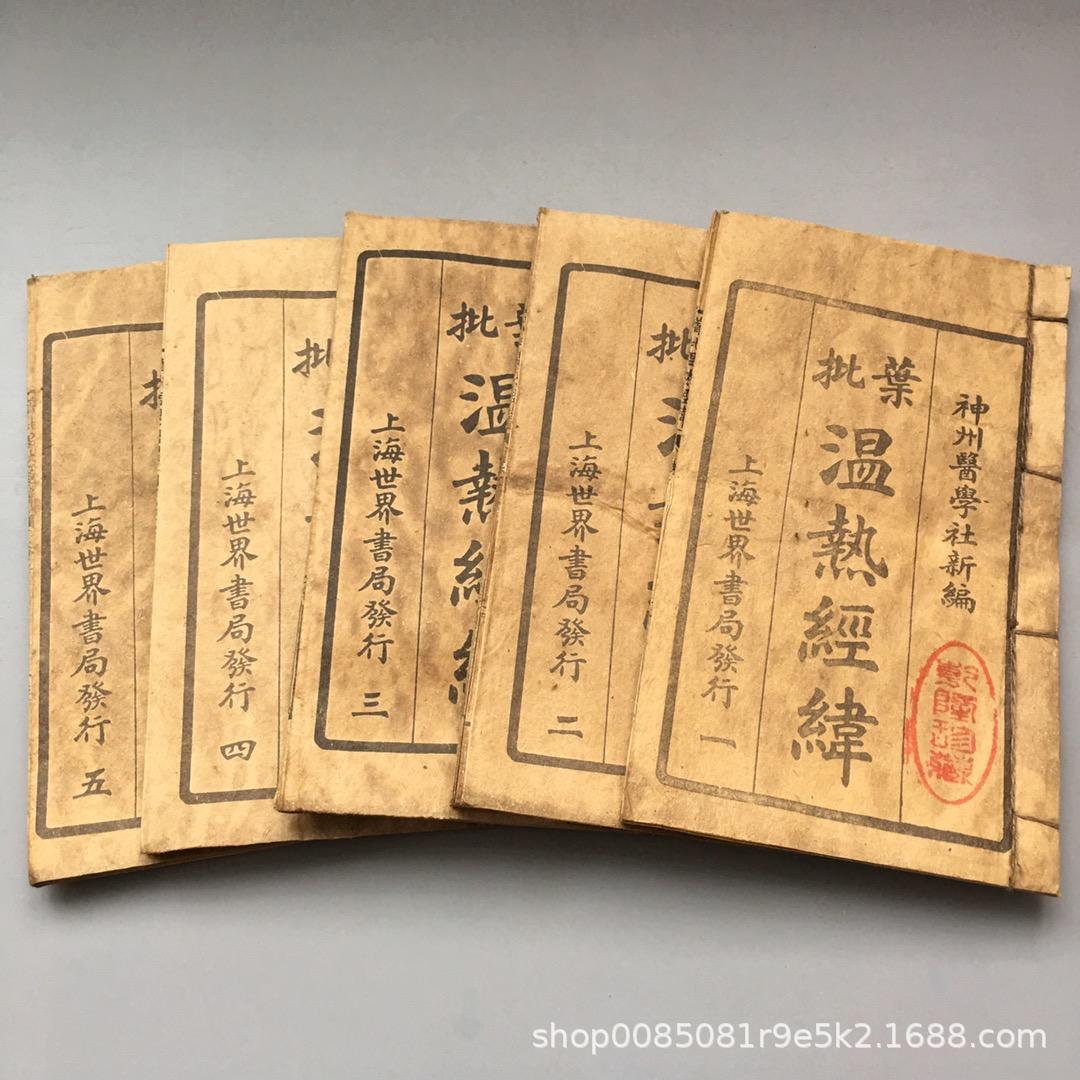 神州醫學社新編
葉批
温熱經緯
上海世界書局發行 一
批
上海世界書局發行 二
葉批
温熱經緯
上海世界書局發行 三
批
上海世界書局發行 四
上海世界書局發行 五
shop0085081r9e5k2.1688.com